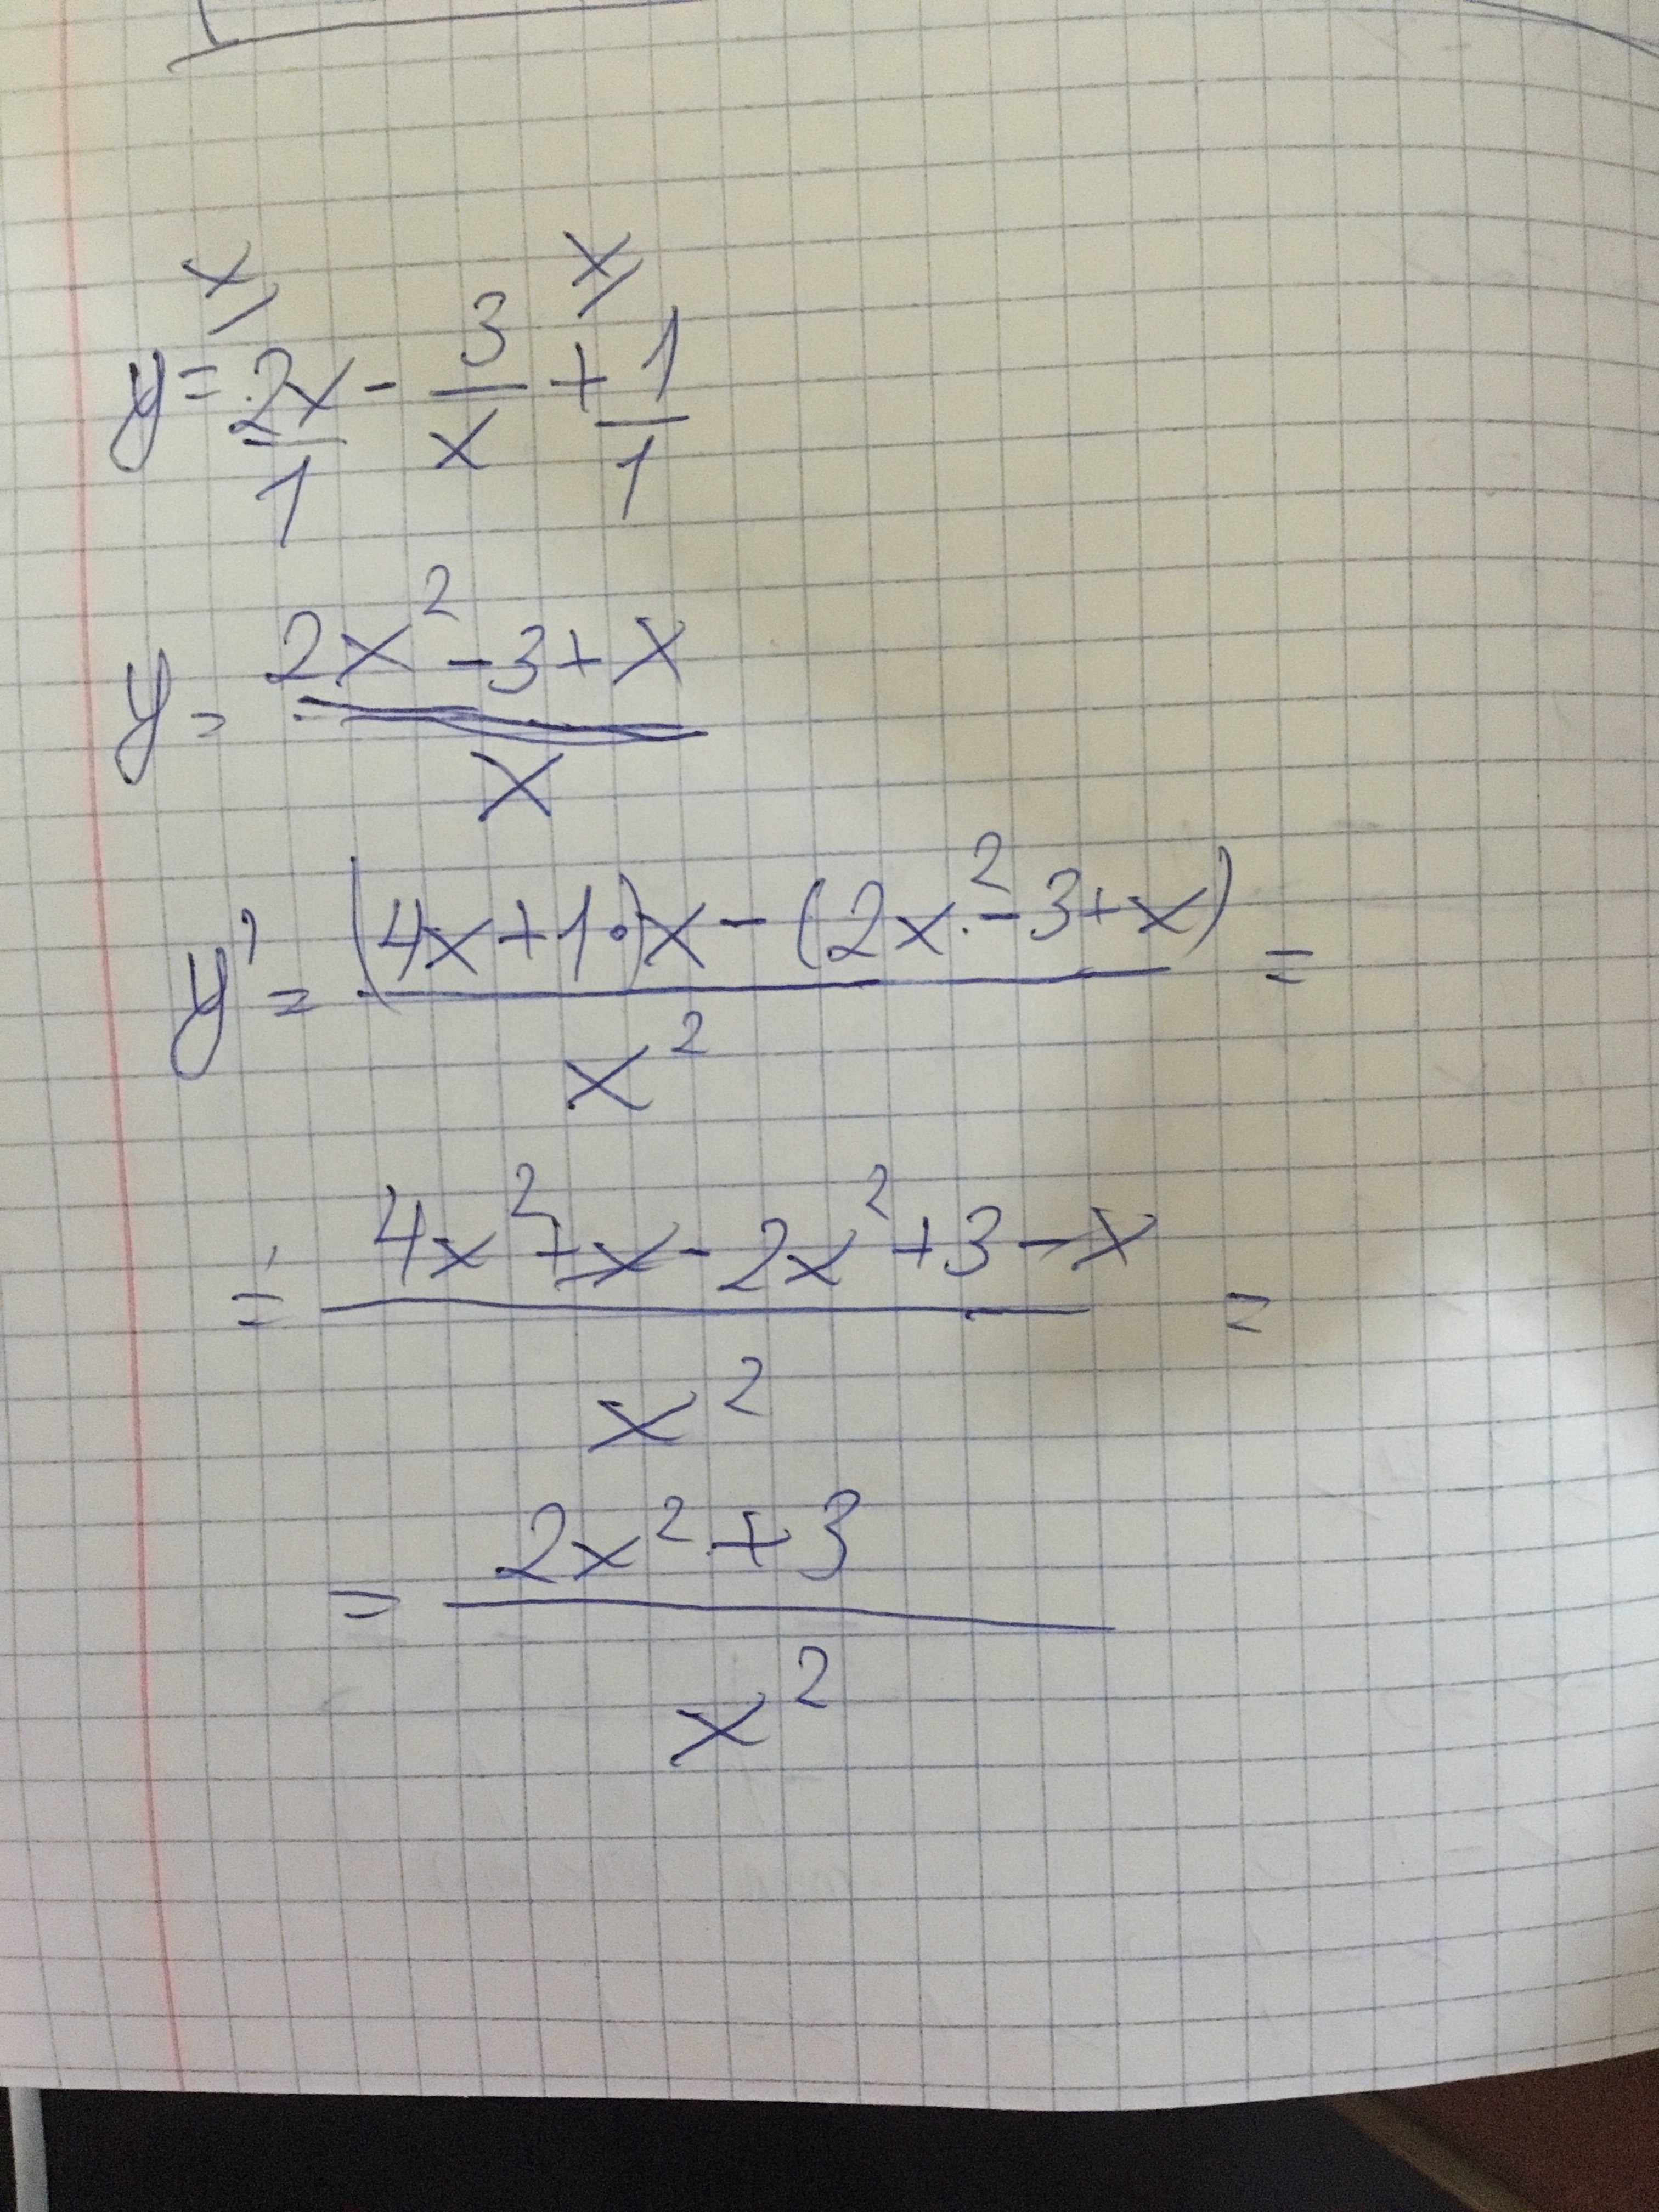 x x
y = 2x/1 - 3/x + 1/1
y = (2x² - 3 + x)/x
y' = ((4x + 1·)x - (2x² - 3 + x))/x² =
= (4x² + x - 2x² + 3 - x)/x² =
= (2x² + 3)/x²